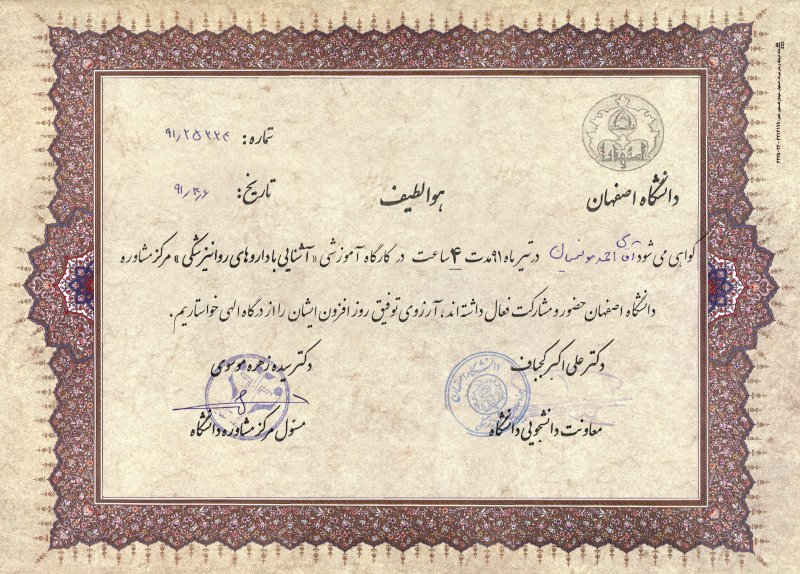 دانشگاه اصفهان
هواللطیف
شماره: ۹۱٫۲۵۲۲۴
تاریخ: ۹۱٫۴٫۶
گواهی می شود آقای احمد در تیر ماه ۹۱ مدت ۴ ساعت در کارگاه آموزشی «آشنایی با داروهای روانپزشکی» مرکز مشاوره
دانشگاه اصفهان حضور و مشارکت فعال داشته اند، آرزوی توفیق روز افزون ایشان را از درگاه الهی خواستاریم.
دکتر علی اکبر کجباف
معاونت دانشجویی دانشگاه
دکتر سیده زهره موسوی
مسئول مرکز مشاوره دانشگاه